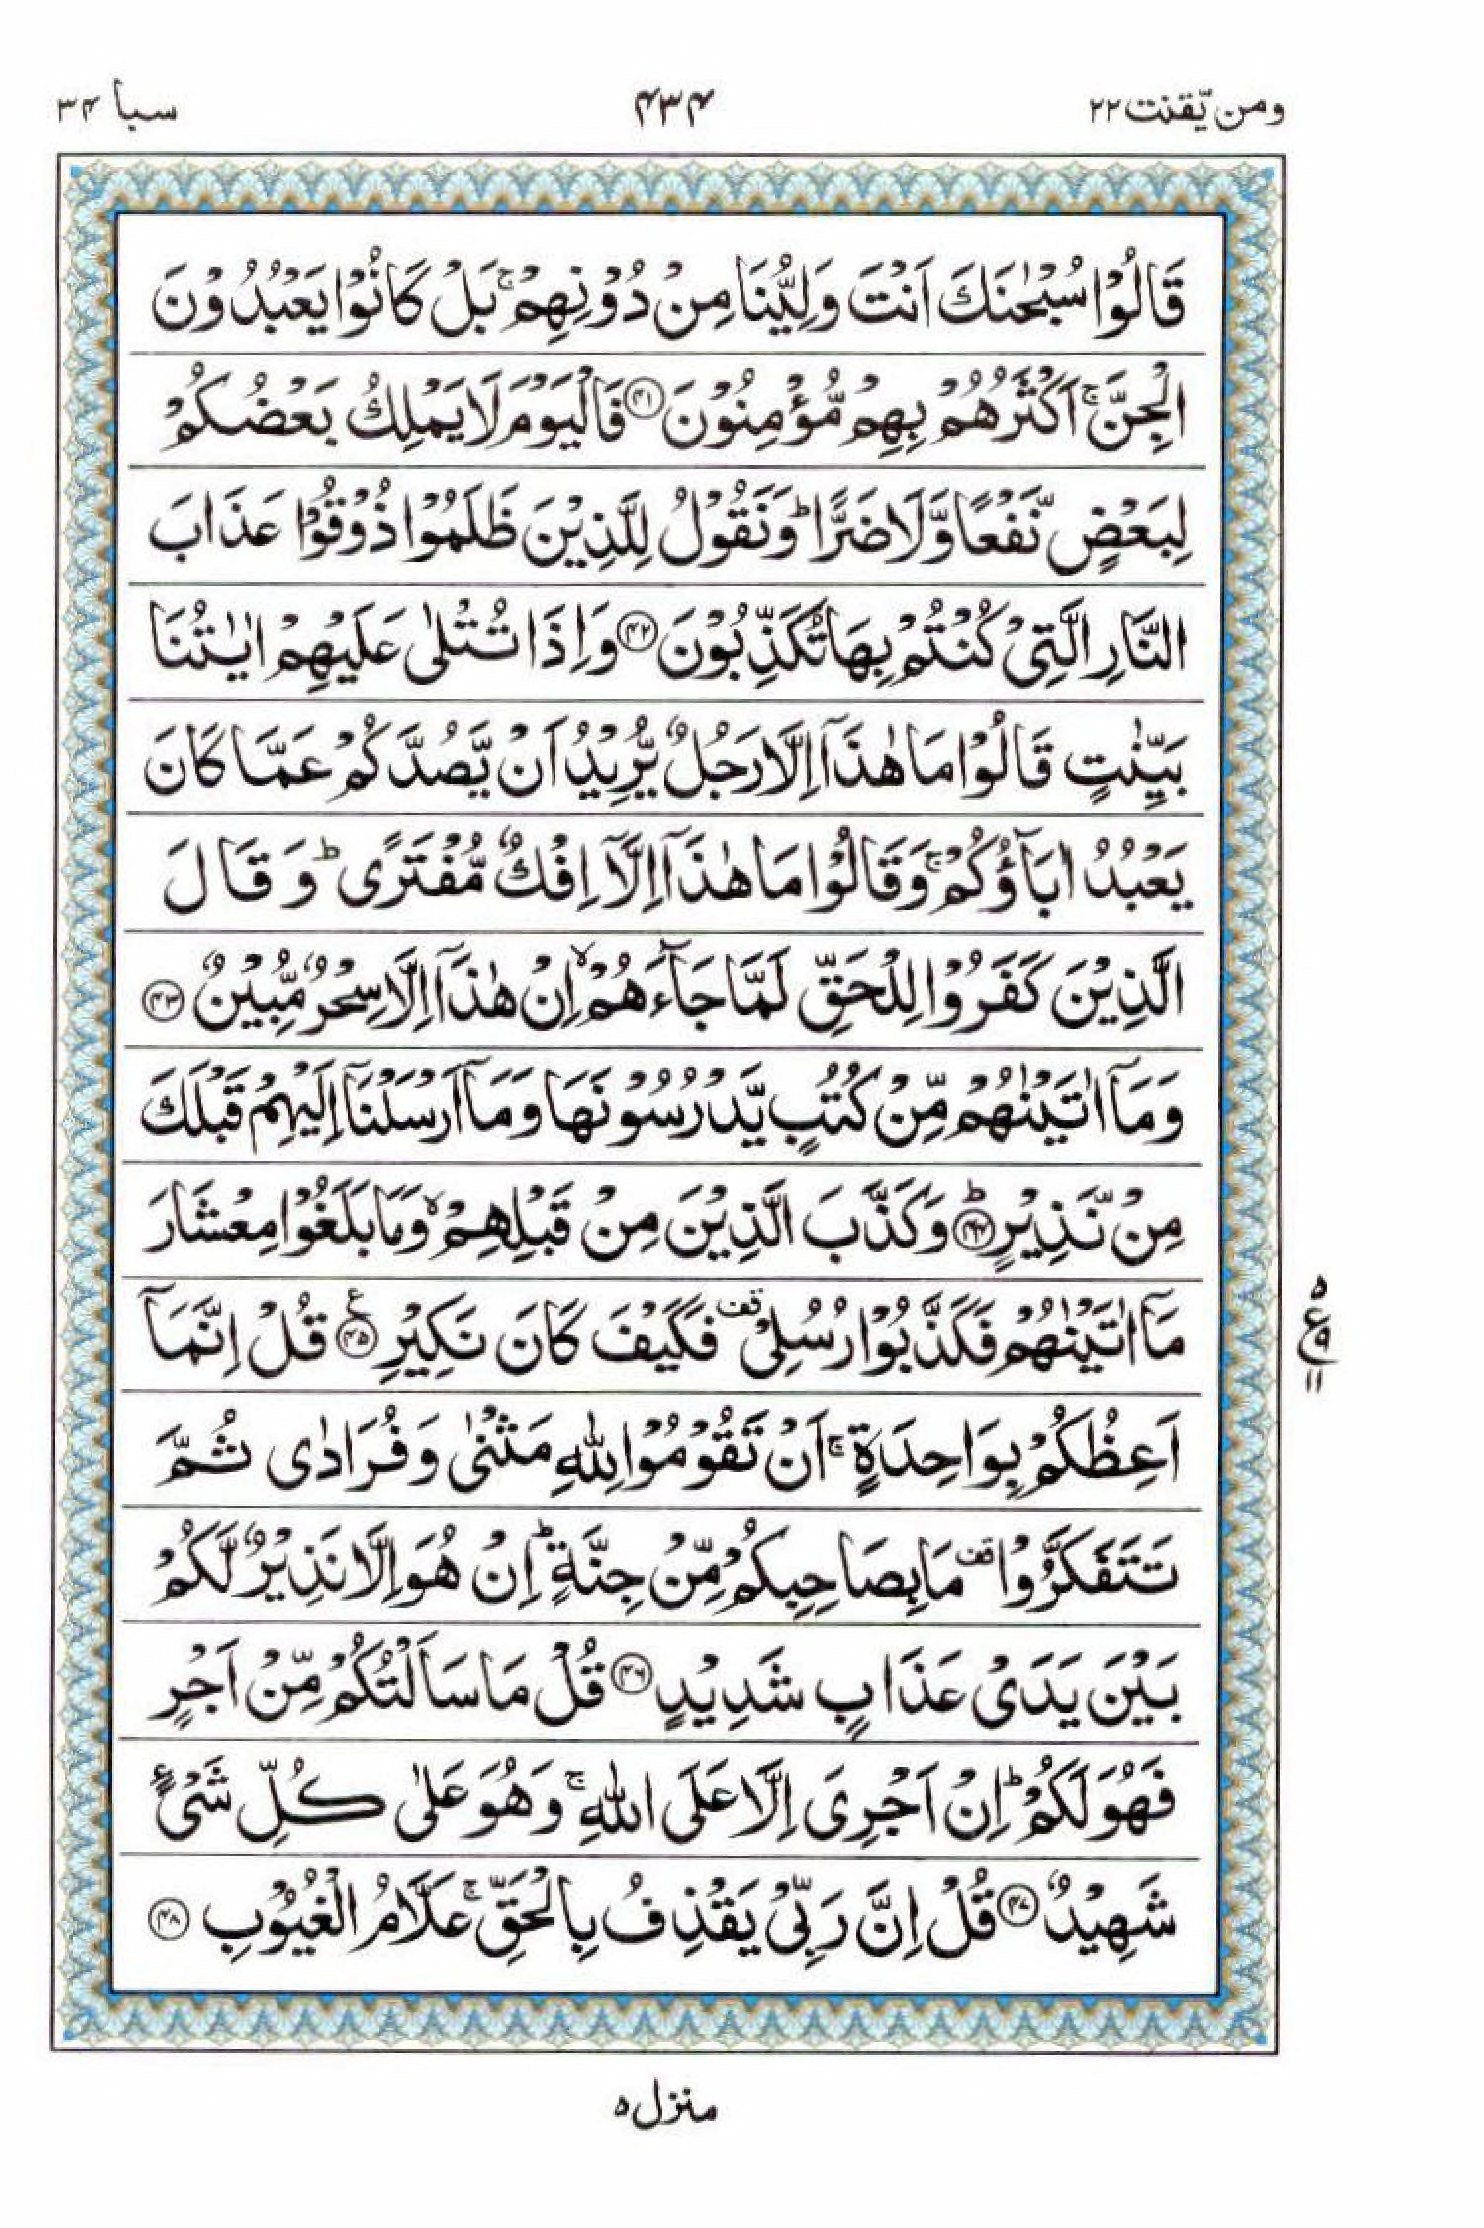 ومن يّقنت ٢٢
۴۳۴
سبا ۳۴
قَالُوۡا سُبۡحٰنَكَ اَنۡتَ وَلِيُّنَا مِنۡ دُوۡنِهِمۡ‌ۚ بَلۡ كَانُوۡا يَعۡبُدُوۡنَ
الۡجِنَّ‌ۚ اَكۡثَرُهُمۡ بِهِمۡ مُّؤۡمِنُوۡنَ ﴿۴۱﴾ فَالۡيَوۡمَ لَا يَمۡلِكُ بَعۡضُكُمۡ
لِبَعۡضٍ نَّفۡعًا وَّلَا ضَرًّاؕ وَنَقُوۡلُ لِلَّذِيۡنَ ظَلَمُوۡا ذُوۡقُوۡا عَذَابَ
النَّارِ الَّتِىۡ كُنۡتُمۡ بِهَا تُكَذِّبُوۡنَ ﴿۴۲﴾ وَاِذَا تُتۡلٰى عَلَيۡهِمۡ اٰيٰتُنَا
بَيِّنٰتٍ قَالُوۡا مَا هٰذَاۤ اِلَّا رَجُلٌ يُّرِيۡدُ اَنۡ يَّصُدَّكُمۡ عَمَّا كَانَ
يَعۡبُدُ اٰبَآؤُكُمۡ‌ۚ وَقَالُوۡا مَا هٰذَاۤ اِلَّاۤ اِفۡكٌ مُّفۡتَرًىؕ وَقَالَ
الَّذِيۡنَ كَفَرُوۡا لِلۡحَقِّ لَمَّا جَآءَهُمۡۙ اِنۡ هٰذَاۤ اِلَّا سِحۡرٌ مُّبِيۡنٌ ﴿۴۳﴾
وَمَاۤ اٰتَيۡنٰهُمۡ مِّنۡ كُتُبٍ يَّدۡرُسُوۡنَهَا وَمَاۤ اَرۡسَلۡنَاۤ اِلَيۡهِمۡ قَبۡلَكَ
مِنۡ نَّذِيۡرٍؕ ﴿۴۴﴾ وَكَذَّبَ الَّذِيۡنَ مِنۡ قَبۡلِهِمۡۙ وَمَا بَلَغُوۡا مِعۡشَارَ
مَاۤ اٰتَيۡنٰهُمۡ فَكَذَّبُوۡا رُسُلِىۡ قف فَكَيۡفَ كَانَ نَكِيۡرِ ﴿۴۵﴾ ع قُلۡ اِنَّمَاۤ
اَعِظُكُمۡ بِوَاحِدَةٍ‌ۚ اَنۡ تَقُوۡمُوۡا لِلّٰهِ مَثۡنٰى وَفُرَادٰى ثُمَّ
تَتَفَكَّرُوۡا قف مَا بِصَاحِبِكُمۡ مِّنۡ جِنَّةٍؕ اِنۡ هُوَ اِلَّا نَذِيۡرٌ لَّكُمۡ
بَيۡنَ يَدَىۡ عَذَابٍ شَدِيۡدٍ ﴿۴۶﴾ قُلۡ مَا سَاَلۡتُكُمۡ مِّنۡ اَجۡرٍ
فَهُوَ لَكُمۡؕ اِنۡ اَجۡرِىَ اِلَّا عَلَى اللّٰهِ‌ۚ وَهُوَ عَلٰى كُلِّ شَىۡءٍ
شَهِيۡدٌ ﴿۴۷﴾ قُلۡ اِنَّ رَبِّىۡ يَقۡذِفُ بِالۡحَقِّ‌ۚ عَلَّامُ الۡغُيُوۡبِ ﴿۴۸﴾
۵
ع ۹
۱۱
منزل ۵